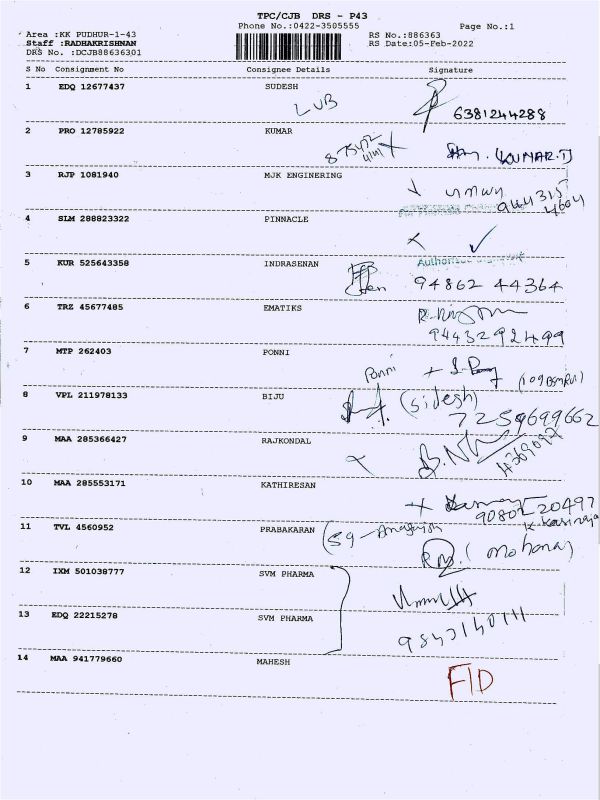 TPC/CJB DRS - P43
Phone No.:0422-3505555
Page No.:1
Area :KK PUDHUR-1-43
Staff :RADHAKRISHNAN
DRS No. :DCJB88636301
RS No.:886363
RS Date:05-Feb-2022
S No Consignment No Consignee Details Signature
1 EDQ 12677437 SUDESH
LUB 6381244288
2 PRO 12785922 KUMAR
(KUMAR.T)
3 RJP 1081940 MJK ENGINERING
944315
4604
4 SLM 288823322 PINNACLE
5 KUR 525643358 INDRASENAN
94862 44364
6 TRZ 45677485 EMATIKS
9443292499
7 MTP 262403 PONNI
Ponni
8 VPL 211978133 BIJU
(Sidesh)
7259699662
9 MAA 285366427 RAJKONDAL
10 MAA 285553171 KATHIRESAN
9080220497
11 TVL 4560952 PRABAKARAN
(Mohana)
12 IXM 501038777 SVM PHARMA
13 EDQ 22215278 SVM PHARMA
9843140111
14 MAA 941779660 MAHESH
F/D